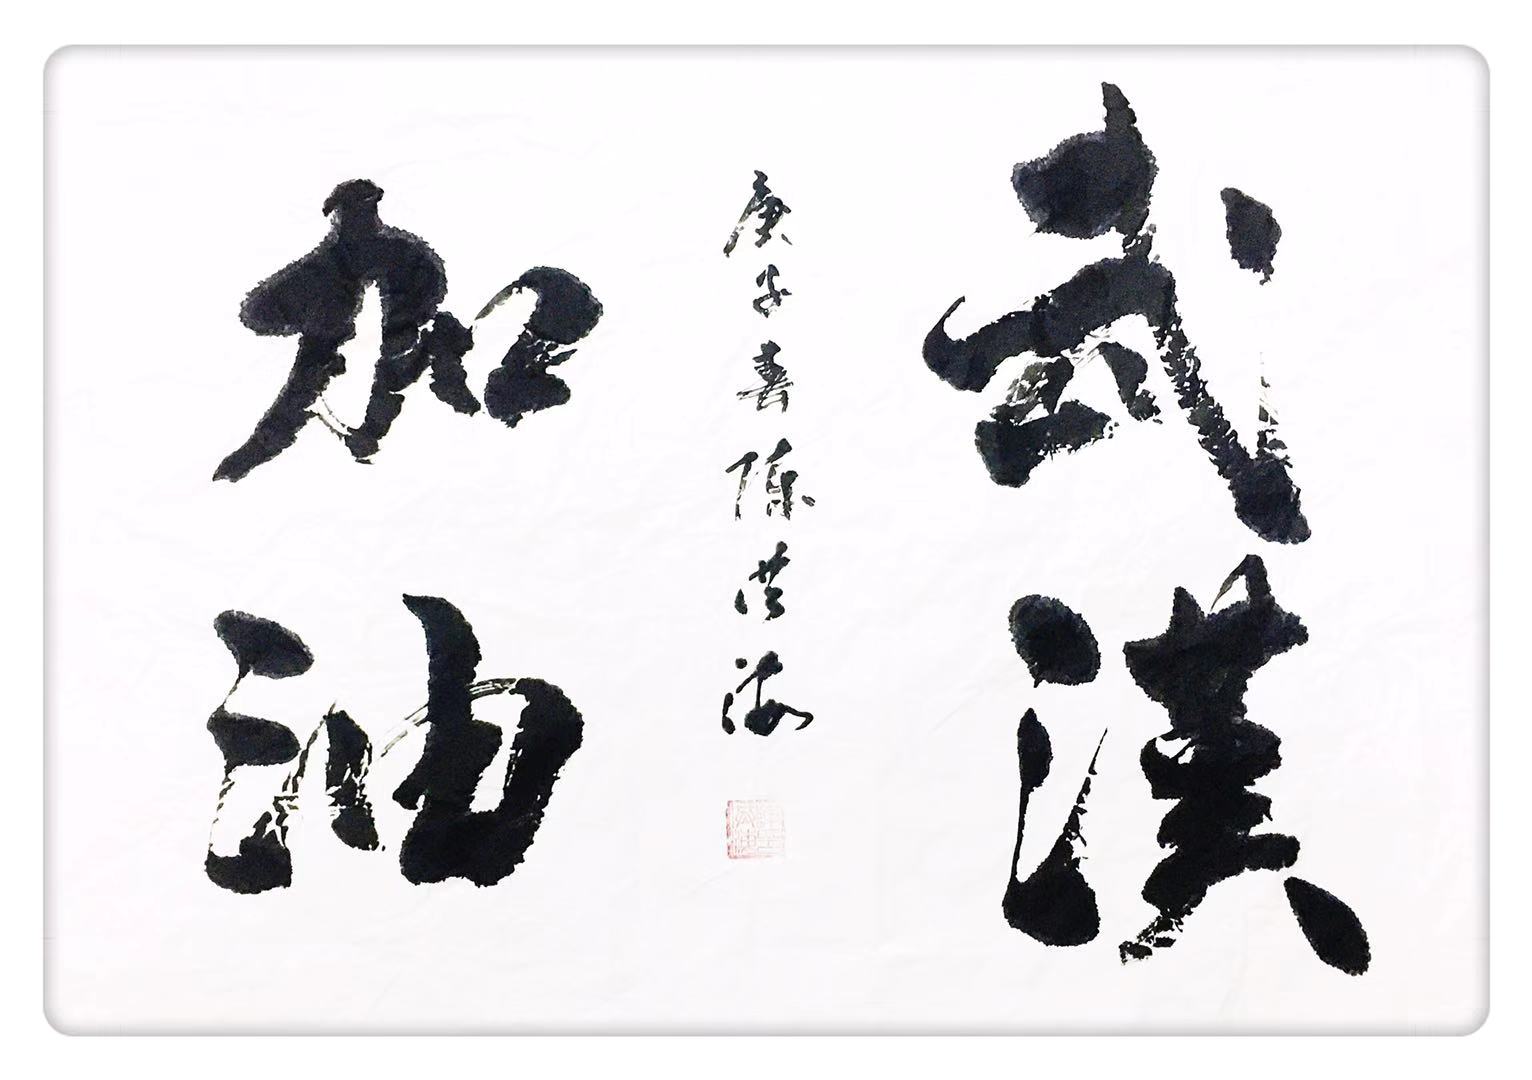 武漢
加油
庚子春陈洪海